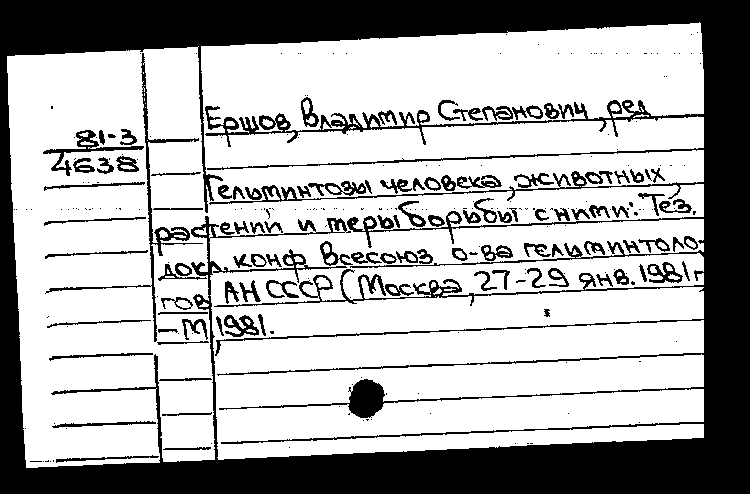 Ершов, Владимир Степанович, ред.
81-3
4638
Гельминтозы человека, животных,
растений и меры борьбы с ними: Тез.
докл. конф. Всесоюз. о-ва гельминтоло-
гов АН СССР (Москва, 27-29 янв. 1981 г.
– М, 1981.